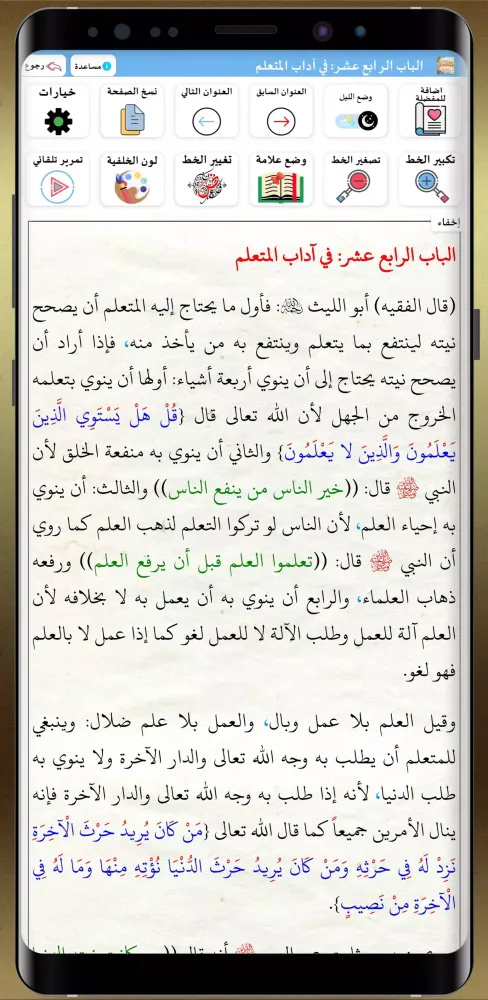 الباب الرابع عشر: في آداب المتعلم
مساعدة
رجوع
اضافة للمفضلة
وضع الليل
العنوان السابق
العنوان التالي
نسخ الصفحة
خيارات
تكبير الخط
تصغير الخط
وضع علامة
تغيير الخط
لون الخلفية
تمرير تلقائي
إخفاء
الباب الرابع عشر: في آداب المتعلم
(قال الفقيه) أبو الليث رحمه الله: فأول ما يحتاج إليه المتعلم أن يصحح
نيته لينتفع بما يتعلم وينتفع به من يأخذ منه، فإذا أراد أن
يصحح نيته يحتاج إلى أن ينوي أربعة أشياء: أولها أن ينوي بتعلمه
الخروج من الجهل لأن الله تعالى قال {قُلْ هَلْ يَسْتَوِي الَّذِينَ
يَعْلَمُونَ وَالَّذِينَ لا يَعْلَمُونَ} والثاني أن ينوي به منفعة الخلق لأن
النبي ﷺ قال: ((خير الناس من ينفع الناس)) والثالث: أن ينوي
به إحياء العلم، لأن الناس لو تركوا التعلم لذهب العلم كما روي
أن النبي ﷺ قال: ((تعلموا العلم قبل أن يرفع العلم)) ورفعه
ذهاب العلماء، والرابع أن ينوي به أن يعمل به لا بخلافه لأن
العلم آلة للعمل وطلب الآلة لا للعمل لغو كما إذا عمل لا بالعلم
فهو لغو.
وقيل العلم بلا عمل وبال، والعمل بلا علم ضلال: وينبغي
للمتعلم أن يطلب به وجه الله تعالى والدار الآخرة ولا ينوي به
طلب الدنيا، لأنه إذا طلب به وجه الله تعالى والدار الآخرة فإنه
ينال الأمرين جميعاً كما قال الله تعالى {مَنْ كَانَ يُرِيدُ حَرْثَ الْآخِرَةِ
نَزِدْ لَهُ فِي حَرْثِهِ وَمَنْ كَانَ يُرِيدُ حَرْثَ الدُّنْيَا نُؤْتِهِ مِنْهَا وَمَا لَهُ فِي
الْآخِرَةِ مِنْ نَصِيبٍ}.